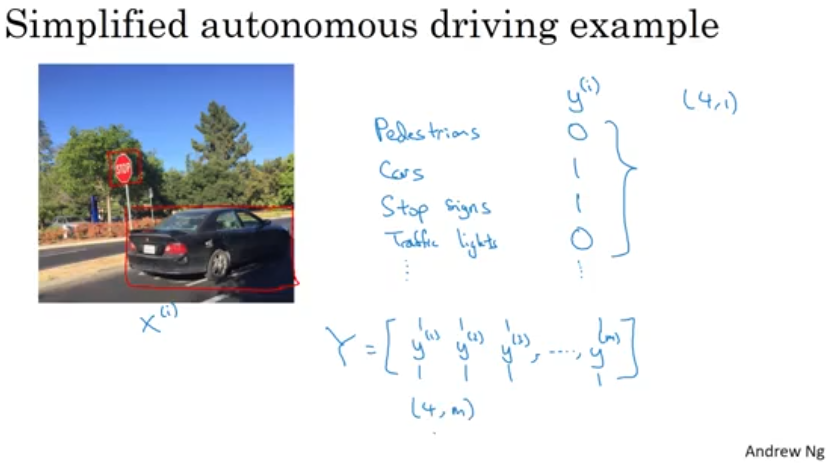 Simplified autonomous driving example
y^(i)
(4,1)
Pedestrians 0
Cars 1
Stop signs 1
Traffic lights 0
⋮ ⋮
STOP
x^(i)
Y = [ y^(1) y^(2) y^(3), ....., y^(m) ]
(4, m)
Andrew Ng